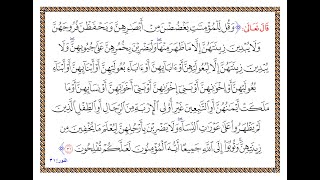 قَالَ تَعَالَى: ﴿ وَقُل لِّلْمُؤْمِنَٰتِ يَغْضُضْنَ مِنْ أَبْصَٰرِهِنَّ وَيَحْفَظْنَ فُرُوجَهُنَّ
وَلَا يُبْدِينَ زِينَتَهُنَّ إِلَّا مَا ظَهَرَ مِنْهَا ۖ وَلْيَضْرِبْنَ بِخُمُرِهِنَّ عَلَىٰ جُيُوبِهِنَّ ۖ وَلَا
يُبْدِينَ زِينَتَهُنَّ إِلَّا لِبُعُولَتِهِنَّ أَوْ ءَابَآئِهِنَّ أَوْ ءَابَآءِ بُعُولَتِهِنَّ أَوْ أَبْنَآئِهِنَّ أَوْ
أَبْنَآءِ بُعُولَتِهِنَّ أَوْ إِخْوَٰنِهِنَّ أَوْ بَنِىٓ إِخْوَٰنِهِنَّ أَوْ بَنِىٓ أَخَوَٰتِهِنَّ أَوْ نِسَآئِهِنَّ أَوْ مَا
مَلَكَتْ أَيْمَٰنُهُنَّ أَوِ ٱلتَّٰبِعِينَ غَيْرِ أُو۟لِى ٱلْإِرْبَةِ مِنَ ٱلرِّجَالِ أَوِ ٱلطِّفْلِ ٱلَّذِينَ
لَمْ يَظْهَرُوا۟ عَلَىٰ عَوْرَٰتِ ٱلنِّسَآءِ ۖ وَلَا يَضْرِبْنَ بِأَرْجُلِهِنَّ لِيُعْلَمَ مَا يُخْفِينَ مِن
زِينَتِهِنَّ ۚ وَتُوبُوٓا۟ إِلَى ٱللَّهِ جَمِيعًا أَيُّهَ ٱلْمُؤْمِنُونَ لَعَلَّكُمْ تُفْلِحُونَ ٣١ ﴾
النور: ٣١